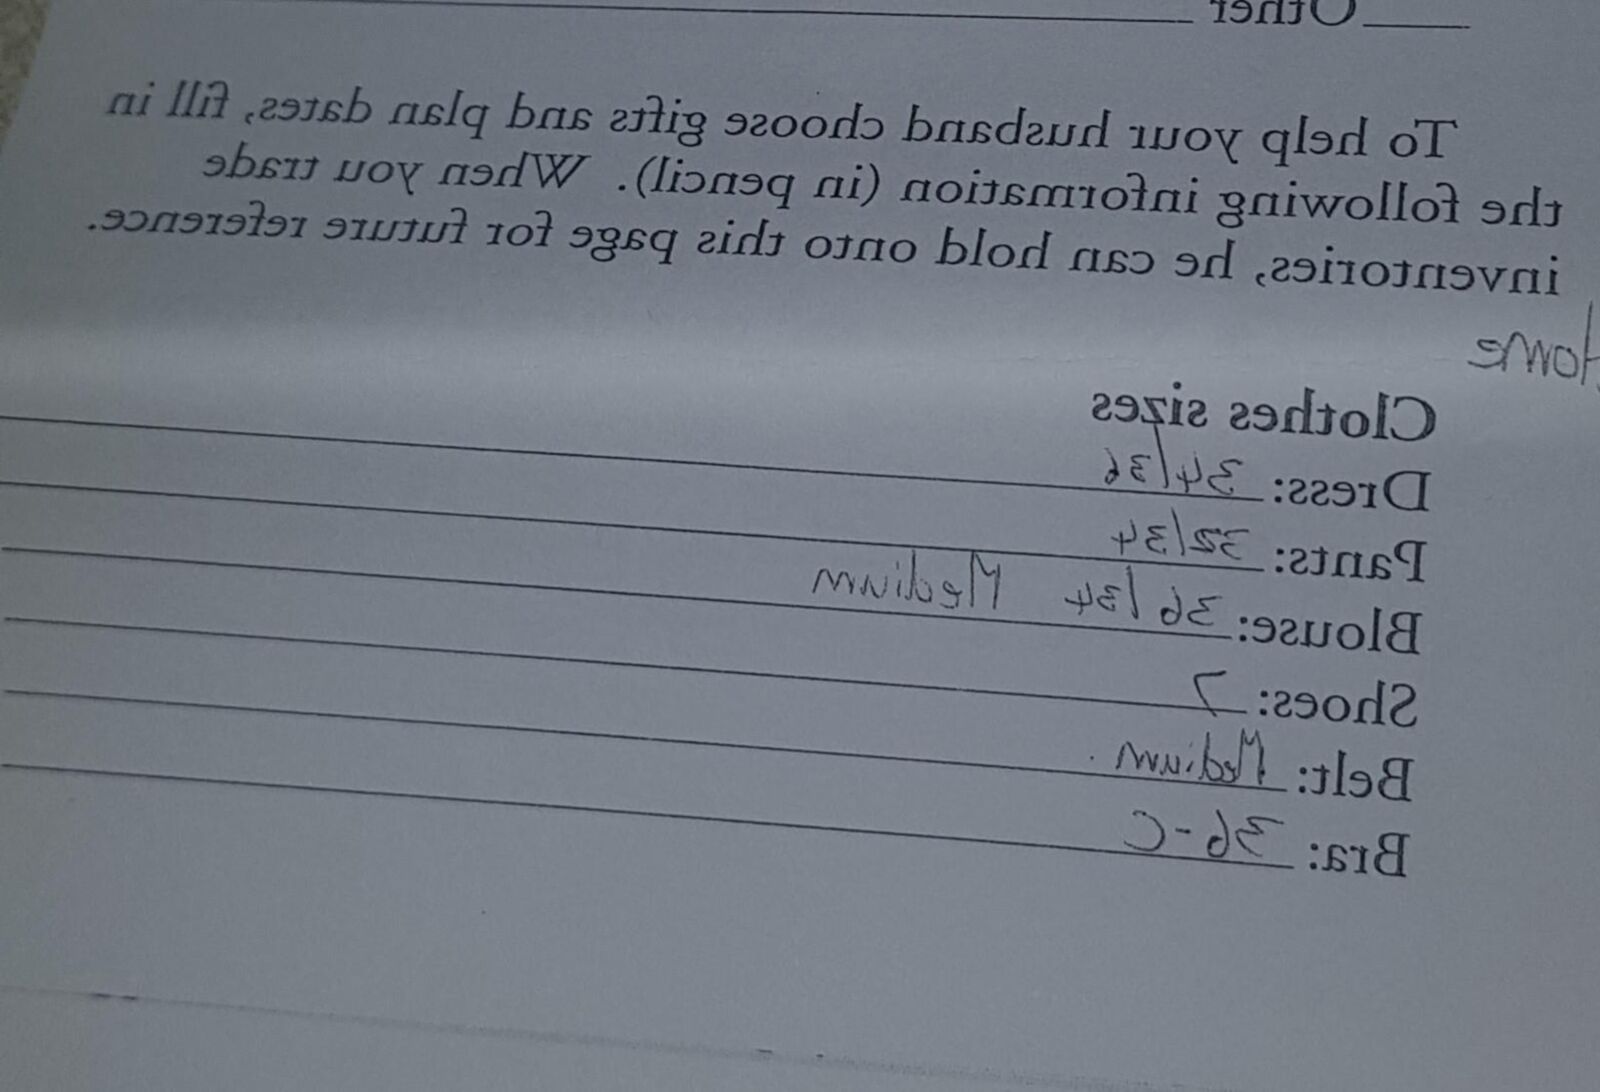 ____Other
To help your husband choose gifts and plan dates, fill in
the following information (in pencil). When you trade
inventories, he can hold onto this page for future reference.
Home
Clothes sizes
Dress: 34/36
Pants: 32/34
Blouse: 36/34 Medium
Shoes: 7
Belt: Medium.
Bra: 36-C